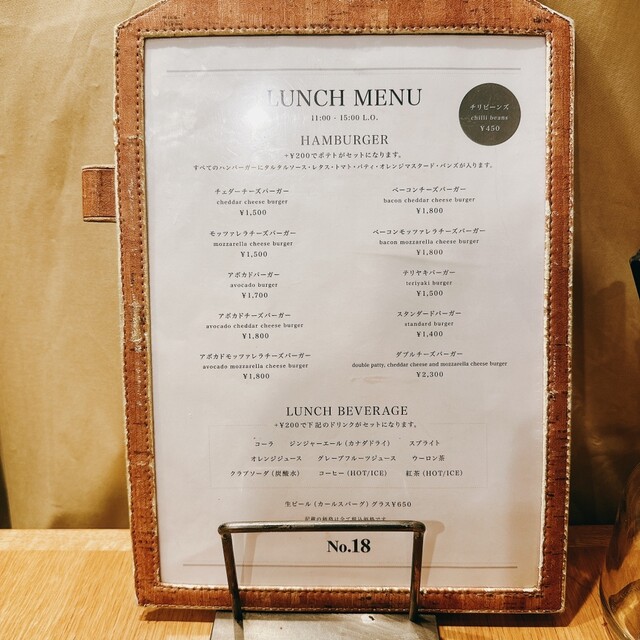 LUNCH MENU
11:00 - 15:00 L.O.
チリビーンズ
chilli beans
¥450
HAMBURGER
+¥200でポテトがセットになります。
すべてのハンバーガーにタルタルソース・レタス・トマト・パティ・オレンジマスタード・バンズが入ります。
チェダーチーズバーガー
cheddar cheese burger
¥1,500
ベーコンチーズバーガー
bacon cheddar cheese burger
¥1,800
モッツァレラチーズバーガー
mozzarella cheese burger
¥1,500
ベーコンモッツァレラチーズバーガー
bacon mozzarella cheese burger
¥1,800
アボカドバーガー
avocado burger
¥1,700
テリヤキバーガー
teriyaki burger
¥1,500
アボカドチーズバーガー
avocado cheddar cheese burger
¥1,800
スタンダードバーガー
standard burger
¥1,400
アボカドモッツァレラチーズバーガー
avocado mozzarella cheese burger
¥1,800
ダブルチーズバーガー
double patty, cheddar cheese and mozzarella cheese burger
¥2,300
LUNCH BEVERAGE
+¥200で下記のドリンクがセットになります。
コーラ ジンジャーエール (カナダドライ) スプライト
オレンジジュース グレープフルーツジュース ウーロン茶
クラブソーダ (炭酸水) コーヒー (HOT/ICE) 紅茶 (HOT/ICE)
生ビール (カールスバーグ) グラス¥650
No.18